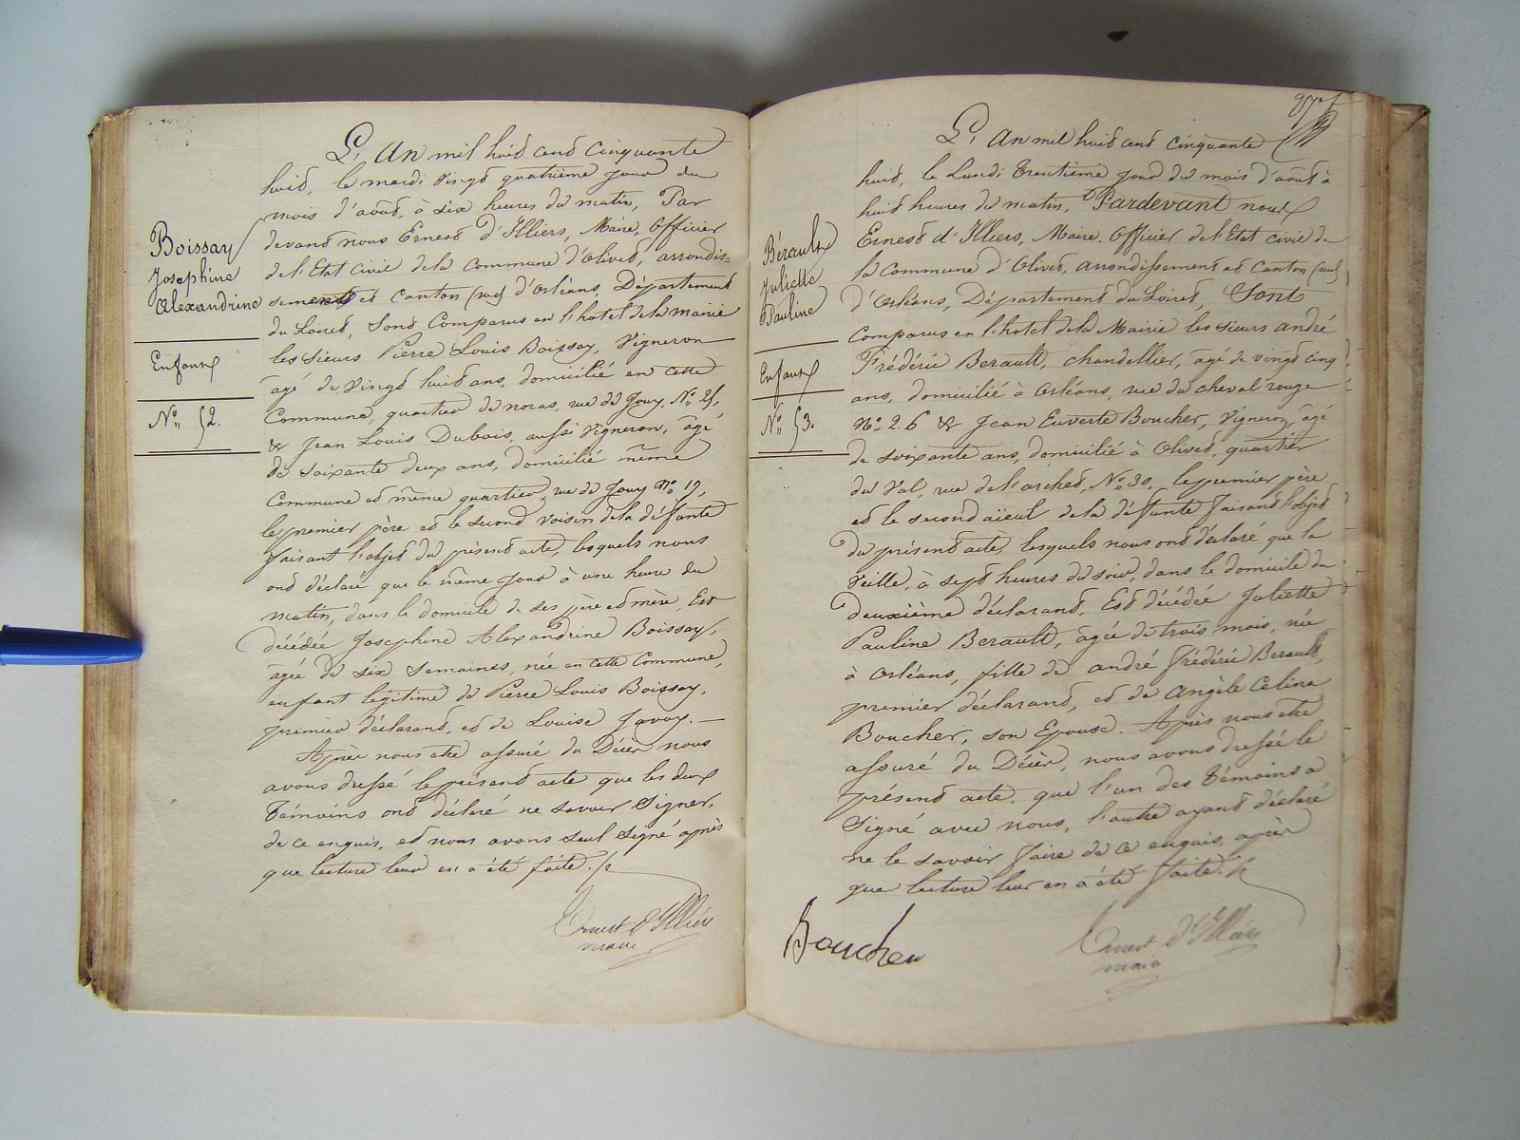 Boissay
Josephine
Alexandrine
Enfant
N° 52.
L'An mil huit cent cinquante
huit, le mardi vingt quatrième jour du
mois d'août, à six heures du matin, Par
devant nous Ernest d'Illiers, Maire, Officier
de l'Etat Civil de la Commune d'Olivet, arrondis-
sement et Canton (sud) d'Orléans, Département
du Loiret, Sont Comparus en l'hotel de la mairie
les sieurs Pierre Louis Boissay, Vigneron
âgé de vingt huit ans, domicilié en cette
Commune, quartier de noras, rue de Jouy, N° 25,
& Jean Louis Dubois, aussi Vigneron, âgé
de soixante deux ans, domicilié même
Commune et même quartier, rue de Jouy N° 19,
le premier père et le second voisin de la défunte
faisant l'objet du présent acte, lesquels nous
ont déclaré que le même jour à une heure du
matin, dans le domicile de ses père et mère, Est
décédée Josephine Alexandrine Boissay,
âgée de six semaines, née en cette Commune,
enfant légitime de Pierre Louis Boissay,
premier déclarant, et de Louise Javoy.
Après nous être assuré du Décès nous
avons dressé le présent acte que les deux
témoins ont déclaré ne savoir signer,
de ce enquis, et nous avons seul signé après
que lecture leur en a été faite.
Ernest d'Illiers
maire
Bérault
Juliette
Pauline
Enfant
N° 53.
L'An mil huit cent cinquante
huit, le Lundi trentième jour du mois d'août à
huit heures du matin, Pardevant nous
Ernest d'Illiers, Maire, Officier de l'Etat civil de
la Commune d'Olivet, arrondissement et Canton (sud)
d'Orléans, Département du Loiret, Sont
Comparus en l'hotel de la Mairie les sieurs André
Frédéric Berault, chandellier, âgé de vingt cinq
ans, domicilié à Orléans, rue du cheval rouge
N° 26 & Jean Euverte Boucher, Vigneron, âgé
de soixante ans, domicilié à Olivet, quartier
du Val, rue de l'archet, N° 30, le premier père
et le second aïeul de la défunte faisant l'objet
du présent acte, lesquels nous ont déclaré que la
veille, à sept heures du soir, dans le domicile du
deuxième déclarant, Est décédée Juliette
Pauline Berault, âgée de trois mois, née
à Orléans, fille de André Frédéric Berault,
premier déclarant, et de Angèle Celina
Boucher, son Epouse. Après nous être
assuré du Décès, nous avons dressé le
présent acte, que l'un des témoins a
signé avec nous, l'autre ayant déclaré
ne le savoir faire de ce enquis, après
que lecture leur en a été faite.
Boucher
Ernest d'Illiers
maire